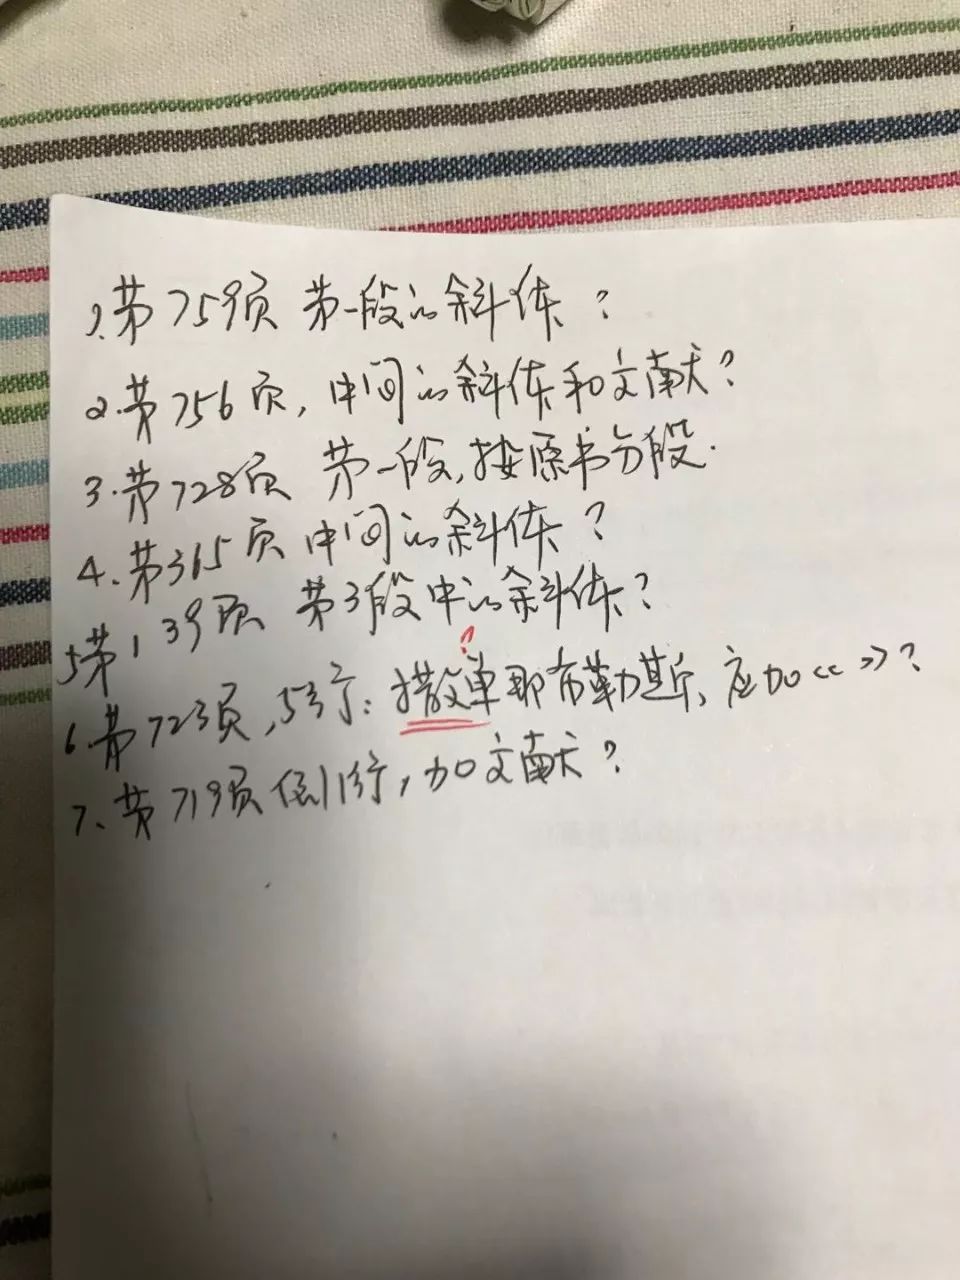 1.第759页 第一段的斜体？
2.第756页，中间的斜体和文献？
3.第728页 第一段，按原书分段.
4.第365页 中间的斜体？
5第139页 第3段中的斜体？
？
6.第723页，5行：撒单耶布勒斯，应加《》？
7、第719页 倒1行，加文献？